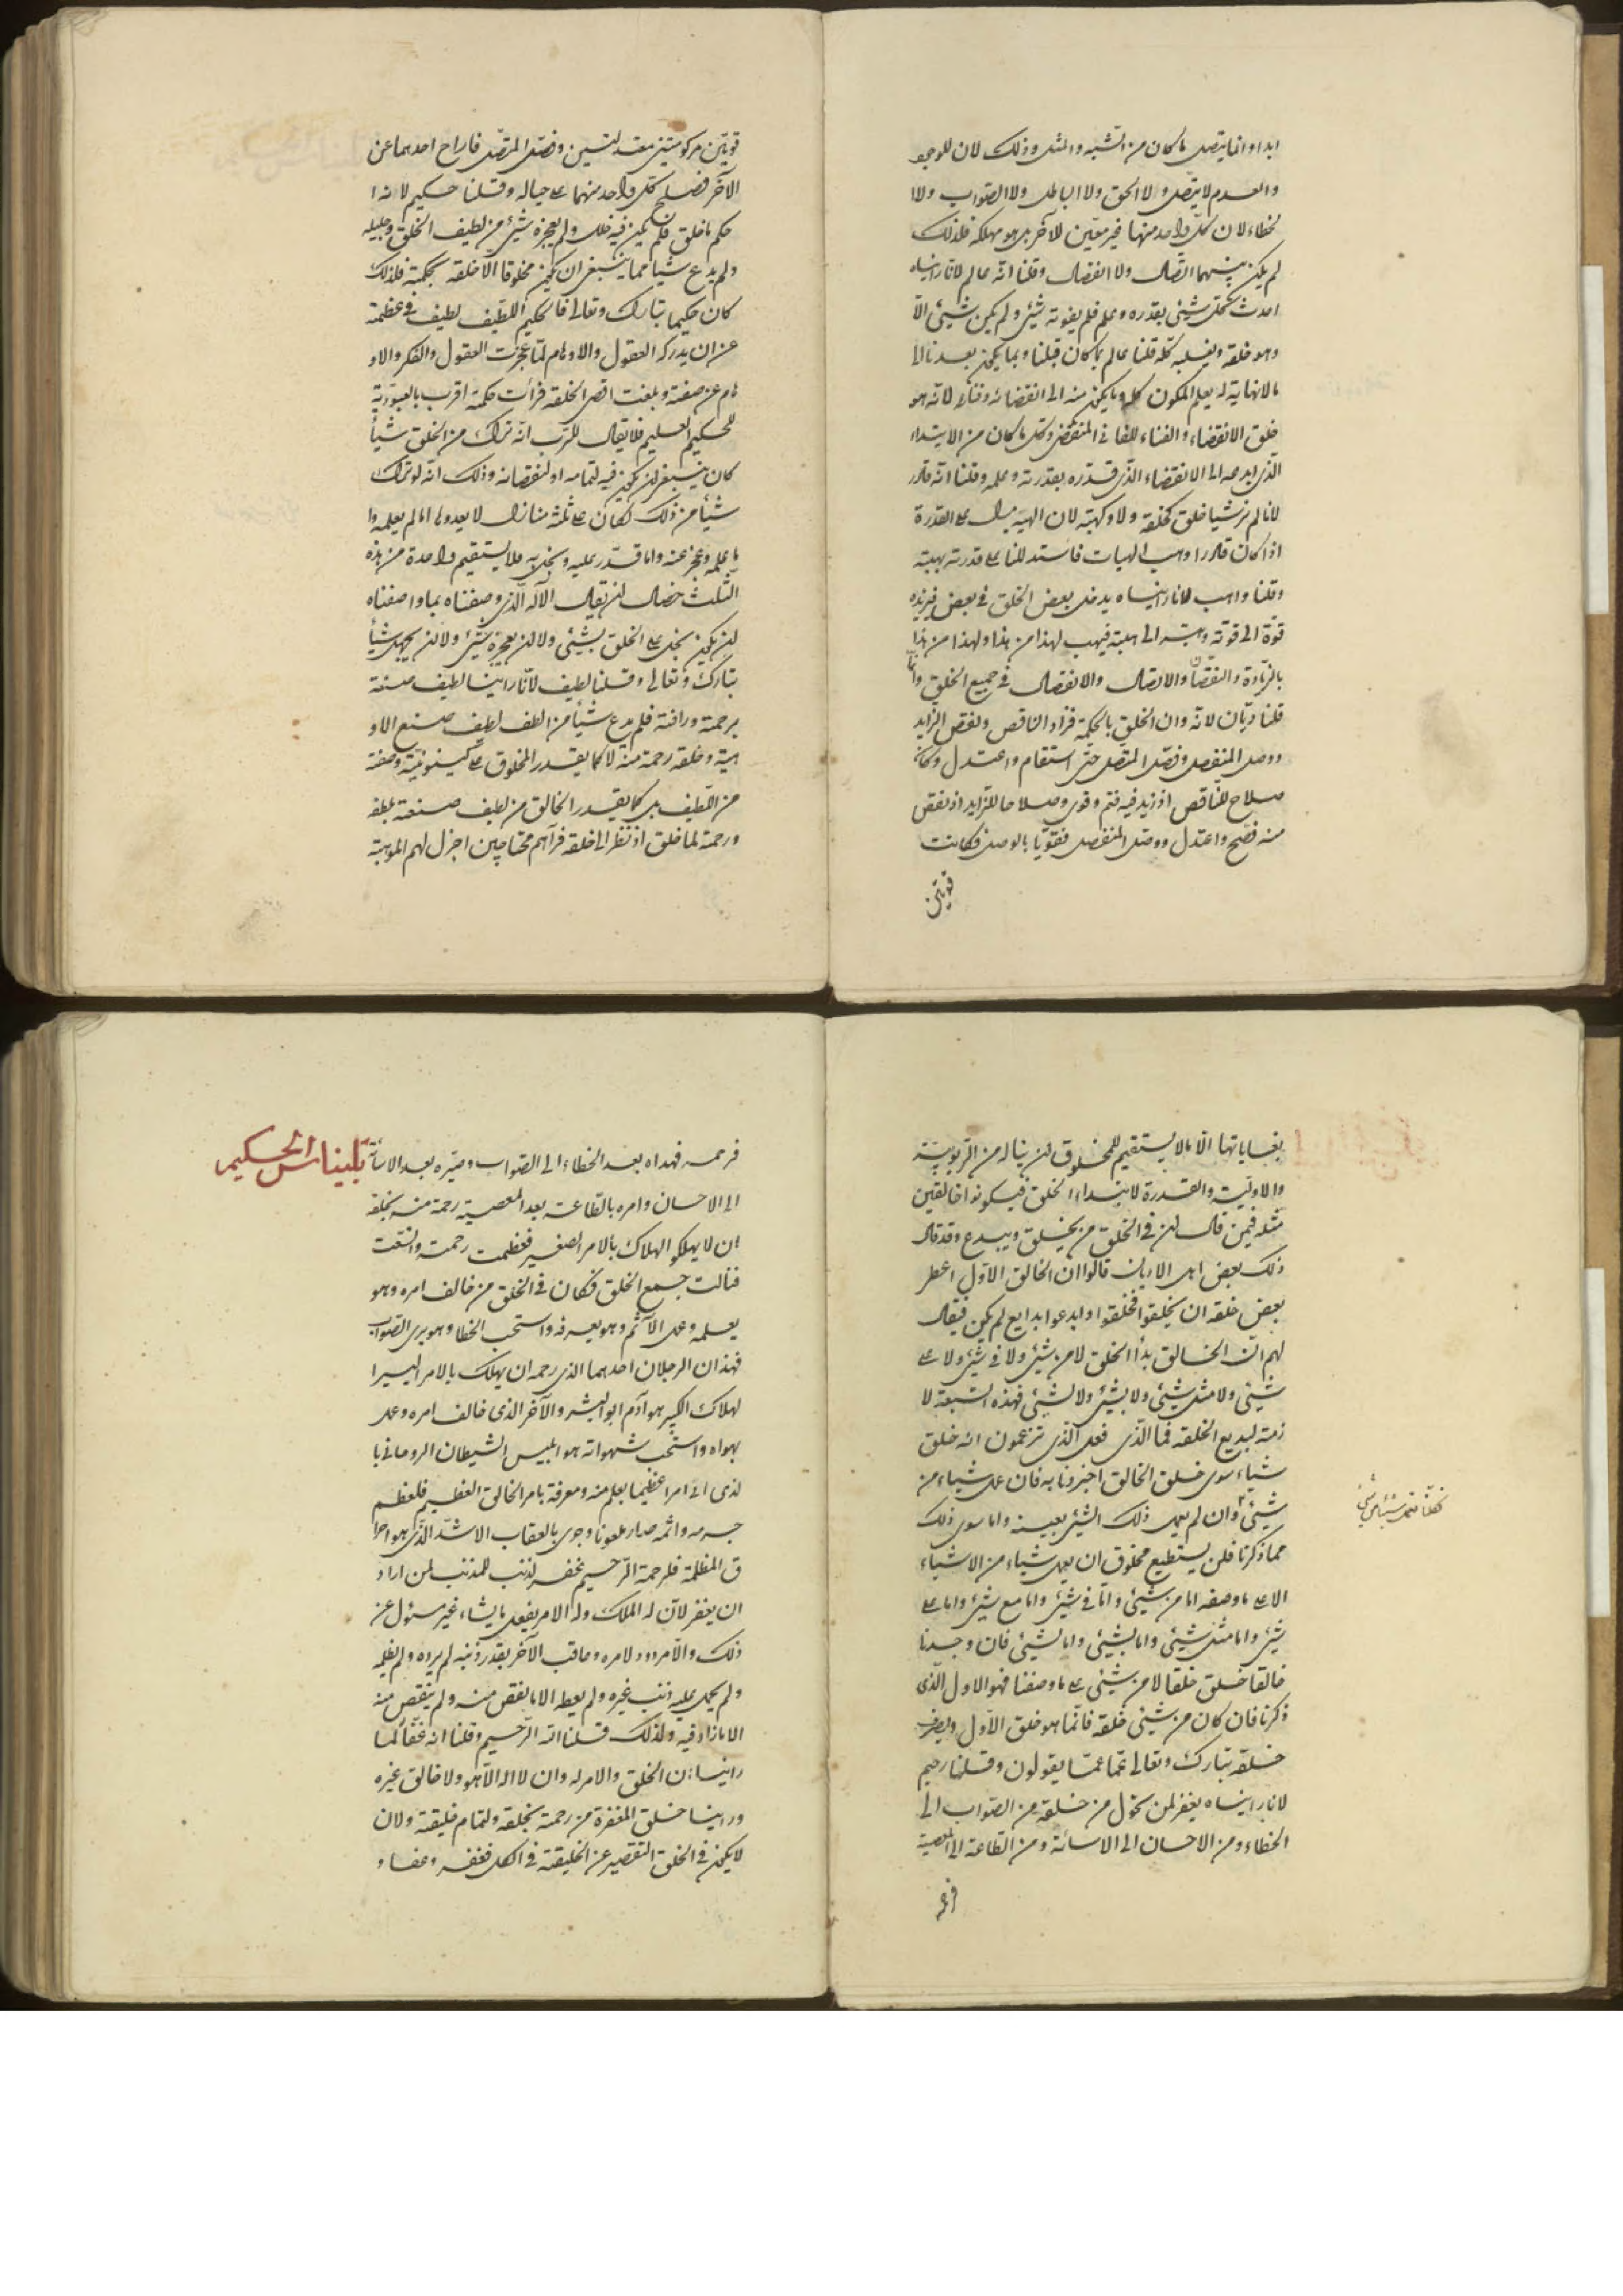 ابدا وانما يتصل ما كان من الشبه والمثل وذلك لان للوجود
والعدم لا يتصل ولا الحق ولا الباطل ولا الصواب ولا ا
لخطاء لان كل واحد منهما غير معين للآخر بل هو مهلكه فلذلك
لم يكن بينهما اتصال ولا انفصال وقلنا انه عالم لانا رايناه
احدث كل شيئ بقدره وعلم فلم يفوته شيئ ولم يكن شيئ الا
وهو خلقه وتغلبه كله قلنا عالم بما كان قبلنا وبما يكون بعدنا الى
مالانهاية له يعلم المكون كله وما يكون منه الى انقضائه وفنائه لانه هو
خلق الانقضاء والفناء للفا فى المنقضى وكل ما كان من الابتداء
الذى ابدعه الى الانقضاء الذى قدره بقدرته وعلمه وقلنا انه قادر
لانا لم نر شيا خلق كخلقه ولا وكهبته لان الهبة يدل على القدرة
اذا كان قادرا وهب الهبات فاستدللنا على قدرته بهبته
وقلنا واهب لانا رايناه يدخل بعض الخلق فى بعض فيزيده
قوة الى قوته وهبته الى هبته فيهب لهذا من هذا ولهذا من هذا
بالزيادة والنقصان والاتصال والانفصال فى جميع الخلق وانما
قلنا ديان لانه دان الخلق بالحكمة فزاد الناقص ونقص الزايد
ووصل المنفصل وفصل المتصل حتى استقام واعتدل وكان
صلاح للناقص اذ زيد فيه فتم وقوى وصلاحا للزايد اذ نقص
منه فصح واعتدل ووصل المنفصل فقويا بالوصل فكانت
قويتين
قويتين مركومتين معتدلتين وفصل المتصل فاراح احدهما عن
الآخر فصلح كل واحد منهما على حياله وقلنا حكيم لانه ا
حكم ما خلق فلم يكن فيه خلل ولم يعجزه شيئ من لطيف الخلق وجليله
ولم يدع شيأ مما ينبغى ان يكون مخلوقا الا خلقه بحكمته فلذلك
كان حكيما تبارك وتعالى فالحكيم اللطيف لطيف فى عظمته
عن ان يدركه العقول والاوهام لما عجزت العقول والفكر والاو
هام عن صفته وبلغت اقصى الخلقة فرأت حكمة اقرب بالعبودية
للحكيم العليم فلا يقال للرب انه ترك من الخلق شيأ
كان ينبغى ان يكون فيه لتمامه او لنقصانه وذلك انه لو ترك
شيأ من ذلك لكان على ثلثة منازل لا يعدوها اما لم يعلمه وا
ما علمه وعجز عنه واما قدر عليه وبخل به فلا يستقيم واحدة من هذه
الثلث خصال ان يقال الاله الذى وصفناه بما واصفناه
ان يكون بخل على الخلق بشيئ ولا ان يعجزه شيئ ولا ان يجهل شيأ
تبارك وتعالى وقلنا لطيف لانا راينا لطيف صنعة
برحمته ورافته فلم يدع شيأ من الطف لطيف صنع الاو
هيته وخلقه رحمة منه لا كما يقدر المخلوق على كينونيته وصفته
من اللطيف بل كما يقدر الخالق من لطيف صنعته بلطفه
ورحمة لما خلق اذ نظر الى خلقه فرآهم محتاجين اجزل لهم الموهبة
بغياياتها الا ما لا يستقيم للمخلوق ان يناله من الربوبية
والاولية والقدرة لابتداء الخلق فيكونوا خالقين
مثله فيمن قال ان فى الخلق من يخلق ويبدع وقد قال
ذلك بعض اهل الاديان قالوا ان الخالق الاول اعطى
بعض خلقه ان يخلقوا فخلقوا وابدعوا بدايع لم يكن فيقال
لهم ان الخالق بدأ الخلق لا من شيئ ولا فى شيئ ولا على
شيئ ولا مثل شيئ ولا بشيئ ولا لشيئ فهذه السبعة لا
زمة لبديع الخلقه فما الذى فعل الذى تزعمون انه خلق
شيأ سوى خلق الخالق اخبرونا به فان عمل شيأ من
شيئ وان لم يعمل ذلك الشيئ بعينه واما سوى ذلك
مما ذكرنا فلن يستطيع مخلوق ان يعمل شيأ من الاشياء
الا على ما وصفه اما من شيئ واما فى شيئ واما مع شيئ واما على
شيئ واما مثل شيئ واما بشيئ واما لشيئ فان وجدنا
خالقا خلق خلقا لا من شيئ على ما وصفنا فهو الاول الذى
ذكرنا فان كان من شيئ خلقه فانما هو خلق الاول
خلقه تبارك وتعالى عما يقولون وقلنا رحيم
لانا رايناه يغفر لمن تحول من خلقه من الصواب الى
الخطاء ومن الاحسان الى الاسائة ومن الطاعة الى المعصية
فرحمه
بليناس الحكيم
فرحمه فهداه بعد الخطاء الى الصواب وصيره بعد الاسائة
الى الاحسان وامره بالطاعة بعد المعصية رحمة منه بخلقه
ان لا يهلكوا الهلاك بالامر الصغير فعظمت رحمته واتسعت
فنالت جميع الخلق فكان فى الخلق من خالف امره وهو
يعلمه وعمل الآثم وهو يعرفه واستحب الخطا وهو يرى الصواب
فهذان الرجلان احدهما الذى رحمه ان يهلك بالامر اليسير ا
لهلاك الكبير هو آدم ابو البشر والآخر الذى خالف امره وعمل
بهواه واستحب شهواته هو ابليس الشيطان الروحانى با
لذى اتى امرا عظيما بعلم منه ومعرفة بامر الخالق العظيم فلعظم
جرمه واثمه صار ملعونا وجوزى بالعقاب الاشد الذى هو احرا
ق المظلمة فلرحمة الرحيم غفر الذنب للمذنب لمن اراد
ان يغفر لان له الملك وله الامر يفعل ما يشاء غير مسئول عن
ذلك والامر ردود لامره وعاقب الآخر بقدر ذنبه لم يرده ولم يظلمه
ولم يحمل عليه ذنب غيره ولم يعط الا ما نقص منه ولم ينقص منه
الا ما زاد فيه ولذلك قلنا انه الرحيم وقلنا انه غفار لما
راينا ان الخلق والامر له وان لا اله الا هو ولا خالق غيره
وراينا خلق المغفرة من رحمته بخلقه ولتمام خليقته ولان
لا يكون فى الخلق التقصير عن الخليقة فى الكل فغفر وعفا و